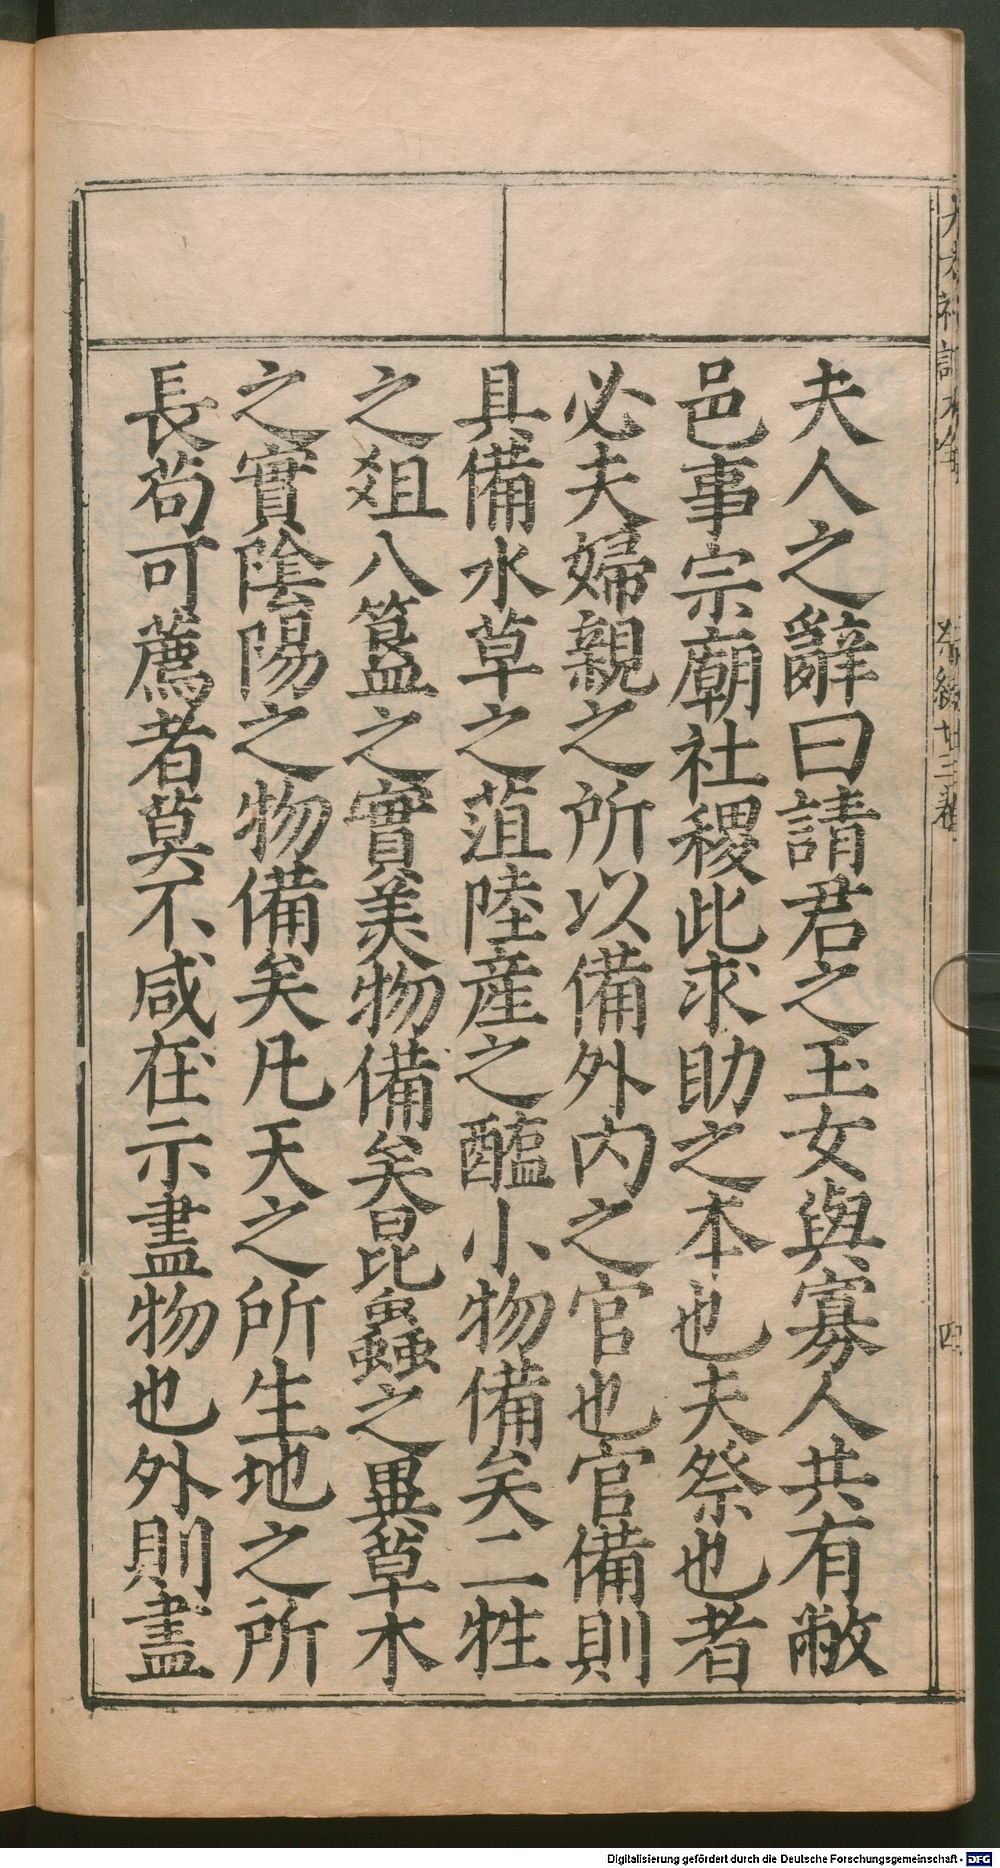 夫人之辭曰請君之玉女與寡人共有敝
邑事宗廟社稷此求助之本也夫祭也者
必夫婦親之所以備外內之官也官備則
具備水草之菹陸產之醢小物備矣二牲
之俎八簋之實美物備矣昆蟲之異草木
之實陰陽之物備矣凡天之所生地之所
長苟可薦者莫不咸在示盡物也外則盡
祭統廿三卷
四
Digitalisierung gefördert durch die Deutsche Forschungsgemeinschaft - DFG